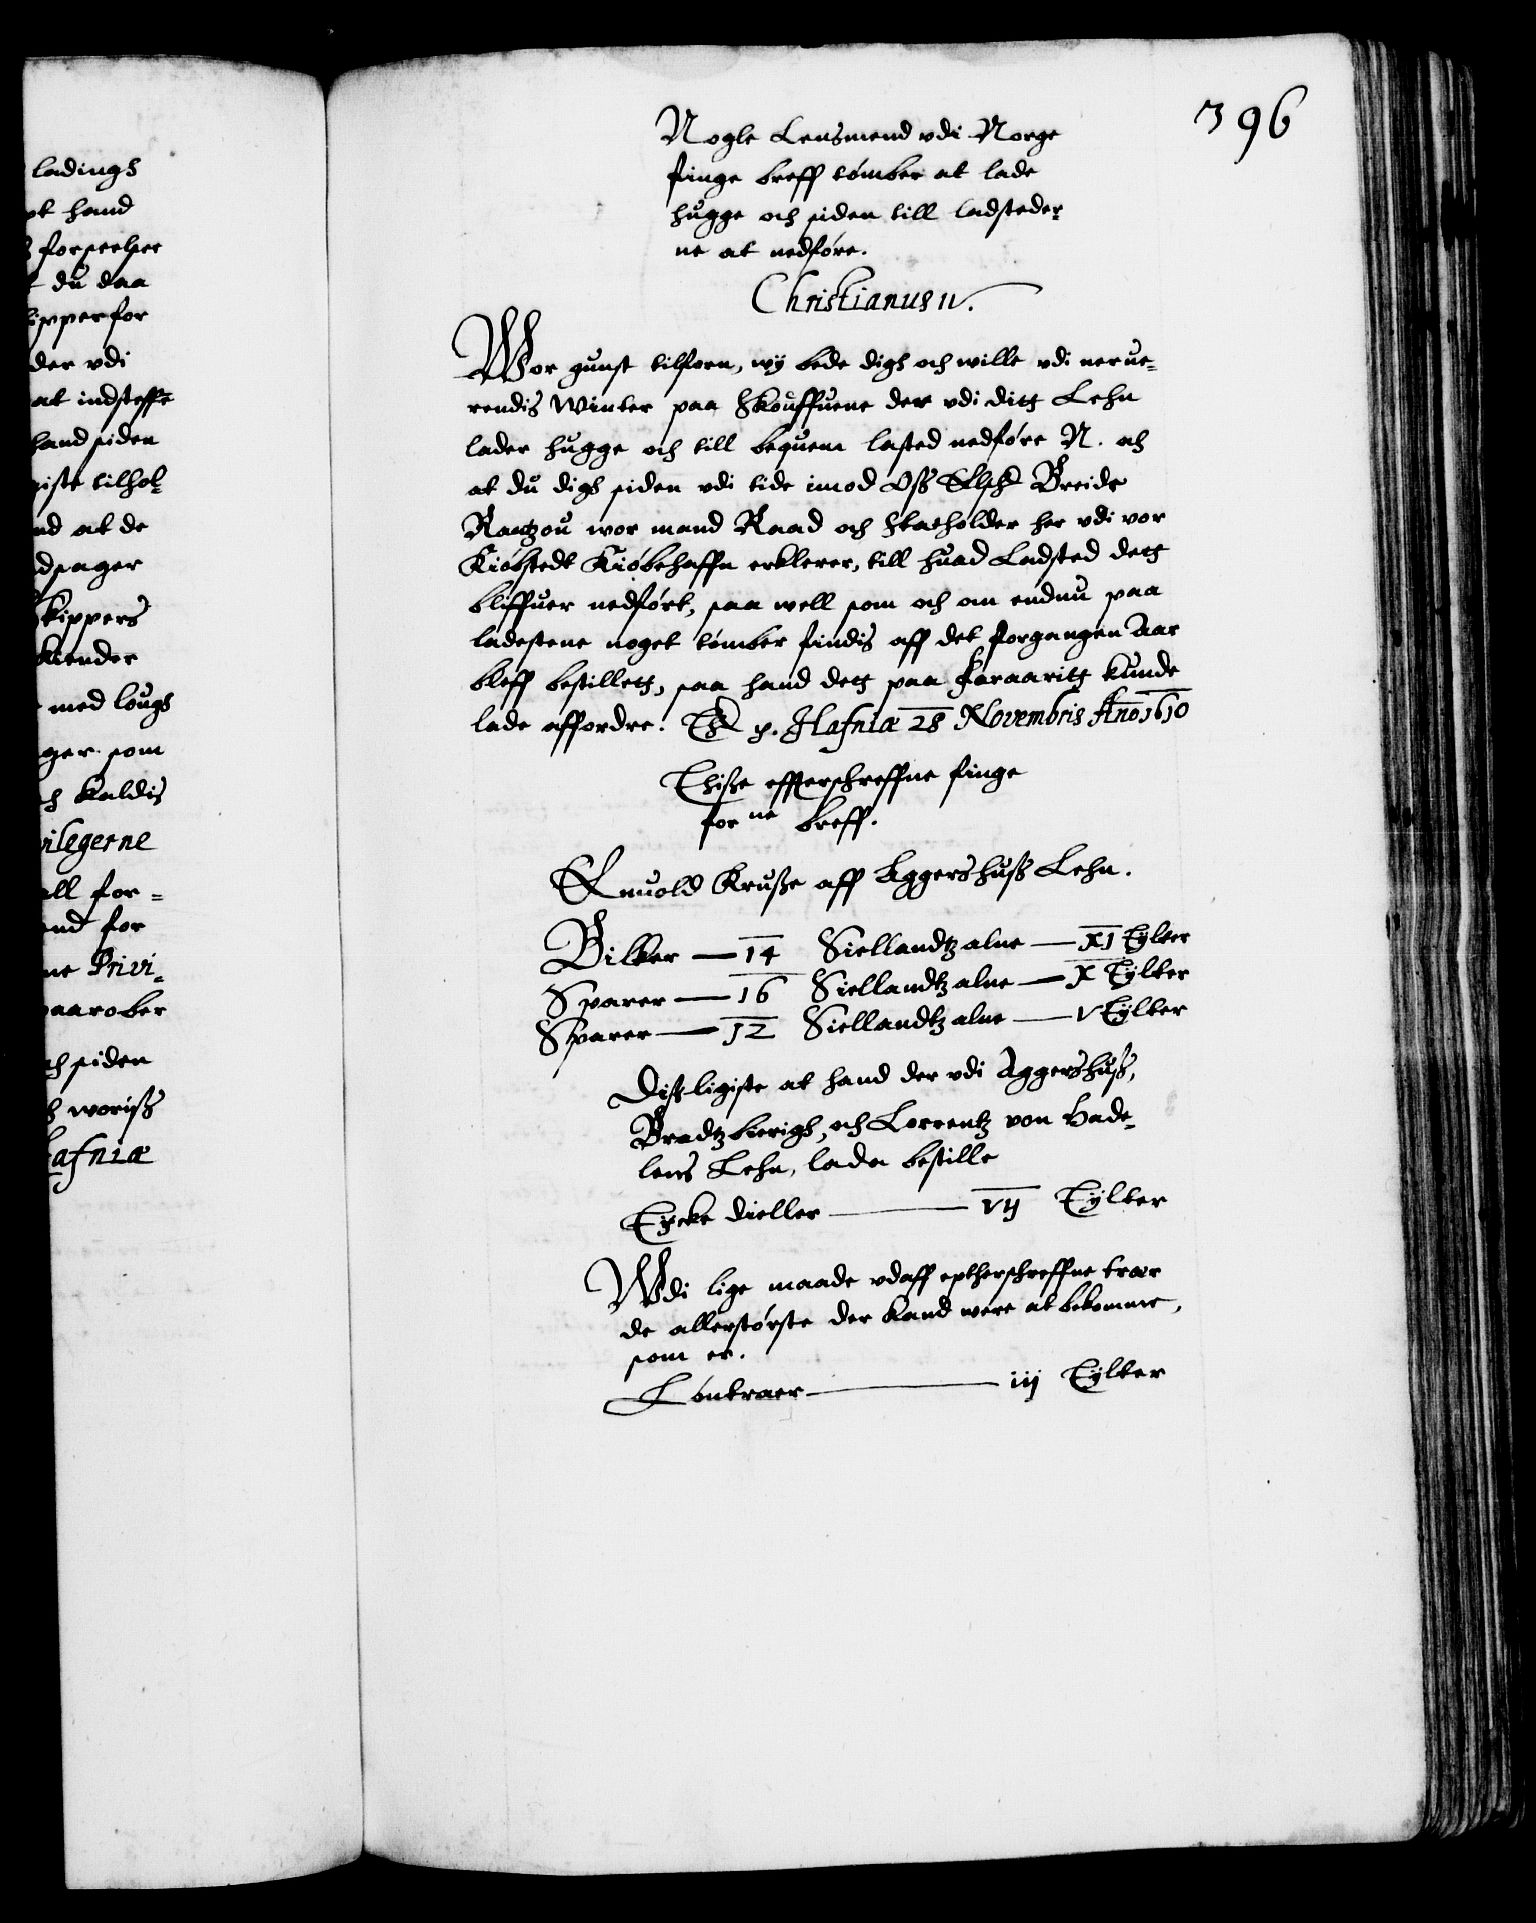 ladings
hand
forseelser
du daa
skipper for
der vdi
at indsteffe
hand siden
tilhol-
at de
skippers
kiender
med lougs
som
kaldis
vilegerne
all for-
for
ne Privi-
siden
worisß
Hafniæ
396
Nogle Lensmend vdi Norge
finge breff tømber at lade
hugge och siden till ladsteder-
ne at nedføre.
Christianus IV.
Wor gunst tilforn, wÿ bede digh och wille vdi nerue-
rendis Winter paa Skouffuene der vdi ditz Lehn
lader hugge och till bequem lasted nedføre N. och
at du digh siden vdi tide imod Oss Elsch. Breide
Rantzou wor mand Raad och Statholder her vdi vor
Kiøbstedt Kiøbehaffn erklerer, till huad Ladsted detz
bliffuer nedført, saa well som och om endnu paa
ladestene noget tømber findis aff det forgangen Aar
bleff bestilletz, saa hand detz paa foraaritz kunde
lade affordre. Ex. p. Hafniæ 28 Novembris Ano 1610
Thisse effterschreffne finge
for ne breff.
Enuold Kruße aff Aggershuß Lehn.
Bilker — 14 Siellandtz alne — XI Tÿlter
Sparer — 16 Siellandtz alne — X Tÿlter
Sparer — 12 Siellandtz alne — V Tÿlter
Dißligiste at hand der vdi Aggershuß,
Bradtzbierigh, och Lorrentz von Hade-
lens Lehn, lader bestille
Eycke dieller — VII Tÿlter
Wdi lige maade vdaff eptherschreffne træer
de allerstørste der kand were at bekomme,
som er.
Løntraer — iij Tÿlter